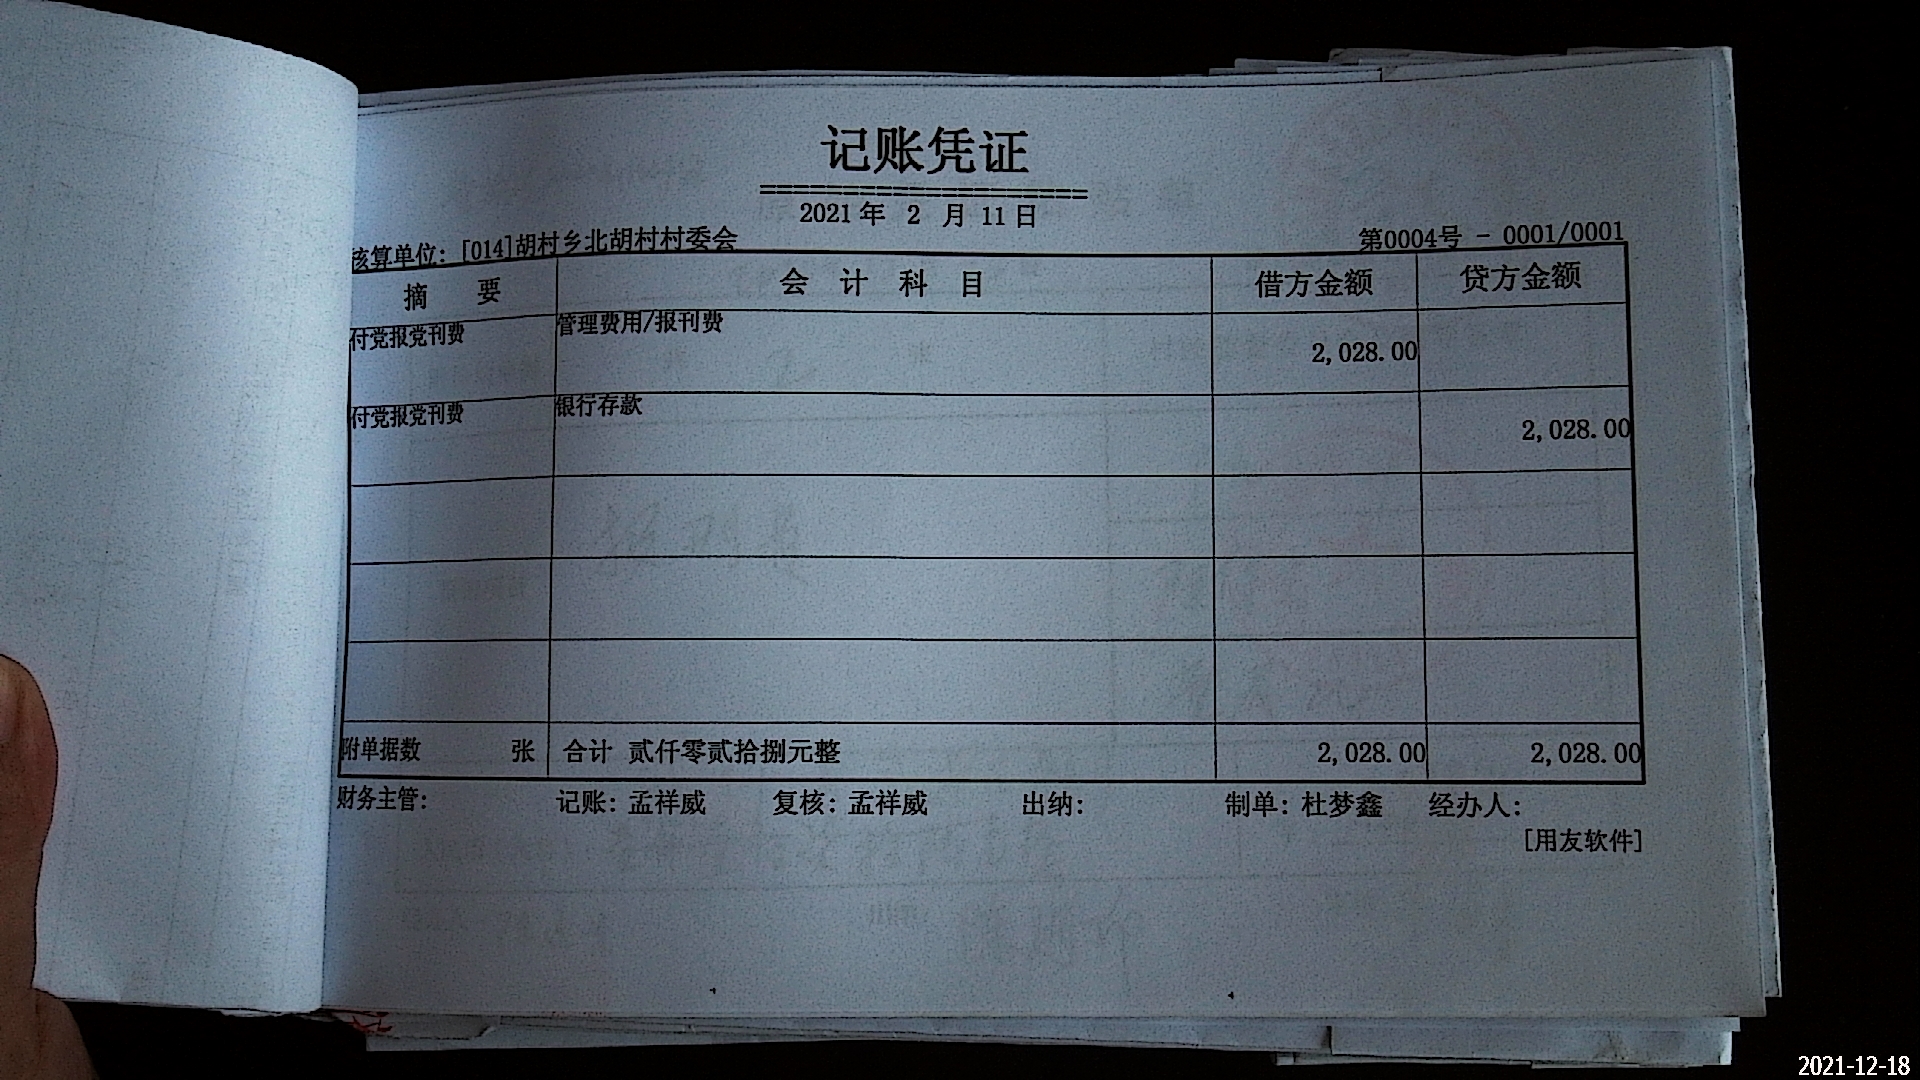 记账凭证
2021年 2 月 11日
核算单位：[014]胡村乡北胡村村委会 第0004号 - 0001/0001
摘 要 会 计 科 目 借方金额 贷方金额
付党报党刊费 管理费用/报刊费 2,028.00
付党报党刊费 银行存款 2,028.00
附单据数 张 合计 贰仟零贰拾捌元整 2,028.00 2,028.00
财务主管： 记账：孟祥威 复核：孟祥威 出纳： 制单：杜梦鑫 经办人：
[用友软件]
2021-12-18